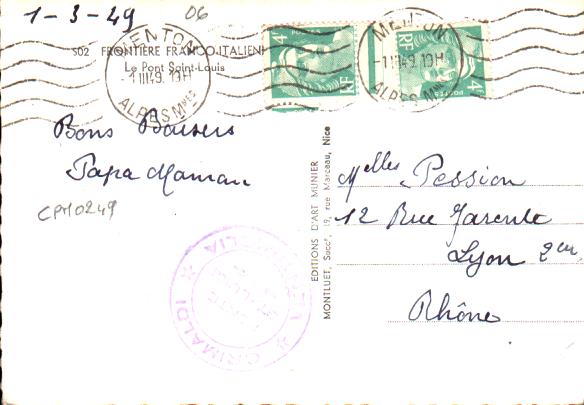 1-3-49
06
502 FRONTIÈRE FRANCO-ITALIENNE
Le Pont Saint-Louis
MENTON
-1 III 49. 19H
ALPES Mmes
4F
RF
MENTON
-1 III 49. 19H
ALPES Mmes
RF
POSTES
4F
Bons Baisers
Papa Maman
CPM0249
EDITIONS D'ART MUNIER
MONTLUET, Succr, 19, rue Marceau, Nice
Melles Pession
12 Rue Jarente
Lyon 2em
Rhône
GRIMALDI